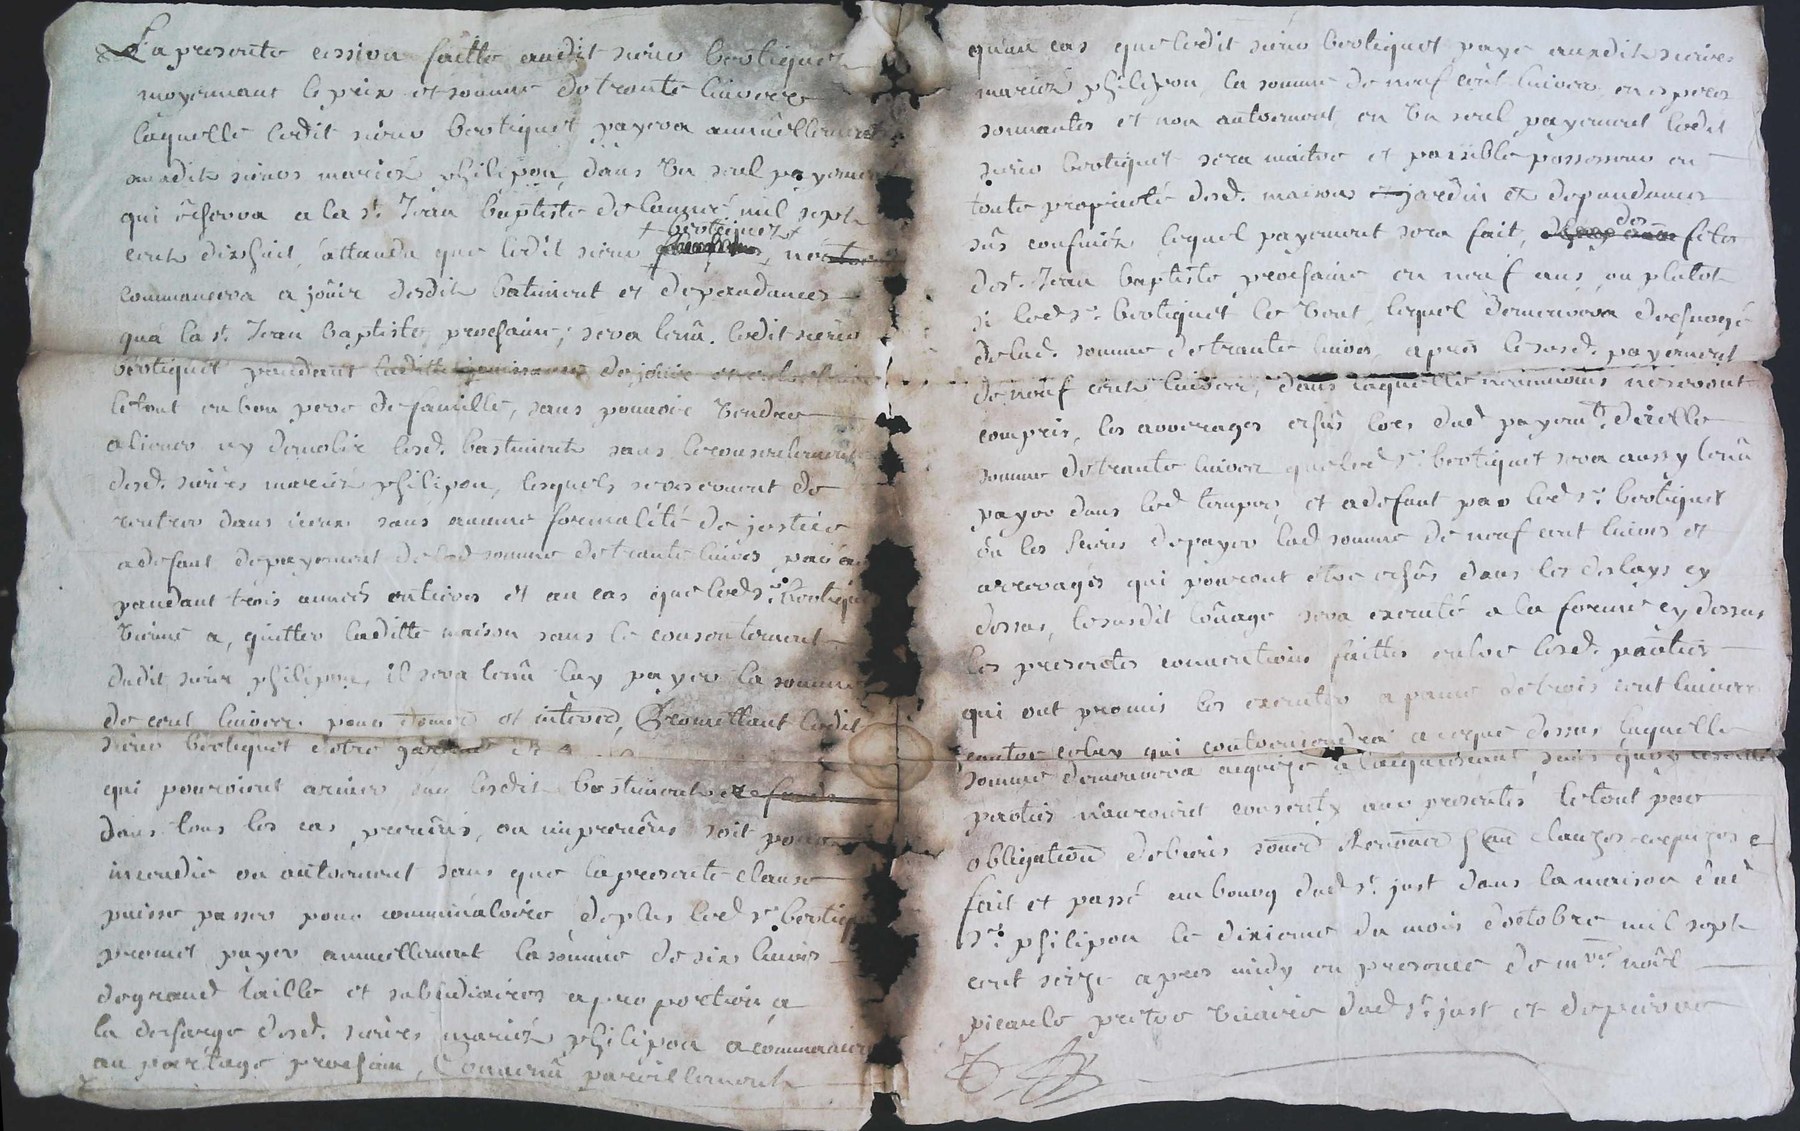 La presente cession faitte audit sieur bertiquet
moyennant le prix et somme de trante livres
laquelle ledit sieur bertiquet payera annuellement
ausdits sieurs mariés philipon, dans un seul payement
qui écherra a la st. Jean baptiste de lannée mil sept
cent dixhuit, attandu que ledit sieur + bertiquet +
commancera a joüir desdits batiment et dependances
qua la st. Jean baptiste prochaine; sera tenû ledit sieur
bertiquet pandant laditte jouissance de joüir
le tout en bon pere de famille, sans pouvoir vendre
aliener ny demolir lesd. bastiments sans le consentement
desd. sieurs mariés philipon, lesquels
rentrer dans iceux sans aucune formalité de justice
a defaut de payement de lad somme de trante livres
pandant trois années entieres et au cas que led sr. bertiquet
vienne a quitter laditte maison sans le consentement
dudit sieur philipon, il sera tenû luy payer la somme
de cent livres pour et interest, promettant ledit
sieur bertiquet
qui pourroient ariver sur lesdits bastiments
dans tous les cas preveus, ou impreveus soit pour
incendie ou autrement sans que la presente clause
puisse passer pour comminatoire, de plus led sr. bertiquet
promet payer annuellement la somme de six livres
de grand taille et subsidiaires a proportion a
la decharge desd. sieurs mariés philipon a commancer
au partage prochain, Convenû pareillement
qu'au cas que ledit sieur bertiquet paye ausdits sieurs
mariés philipon, la somme de neuf cent livres en especes
sonnantes et non autrement en un seul payement ledit
sieur bertiquet sera maitre et paisible possesseur en
toute proprieté desd. maison jardin et dependances
sûs confinés, lequel payement sera fait, des fetes
de st. Jean baptiste prochaine en neuf ans, ou plutot
si led sr. bertiquet le veut, lequel demeurera dechargé
de lad. somme de trante livres, apres le susd. payement
de neuf cent livres, dans laquelle neanmoins ne seront
compris, les arrerages echûs lors dud payemt. dicelle
somme de trante livres que led sr. bertiquet sera aussy tenû
payer dans led temps, et a defaut par led sr. bertiquet
ou les siens de payer lad somme de neuf cent livres et
arrerages qui pouront etre echûs dans les delays cy
dessus, le susdit loüage sera executé a la forme cy dessus
les presentes conventions faittes entre lesd. parties
qui ont promis les executer a paine de trois cent livres
contre celuy qui contreviendra a ce que dessus laquelle
somme demeurera aquise a l'aquiessant, sans quoy lesdittes
parties n'auroient consenty aux presentes, le tout par
obligation de biens renonc clauzes requizes
fait et passé au bourg dud st. just dans la maison dud
sr. philipon le dixieme du mois doctobre mil sept
cent seize apres midy en presence de mre. noël
picarle pretre vicaire dud st. just et de pierre